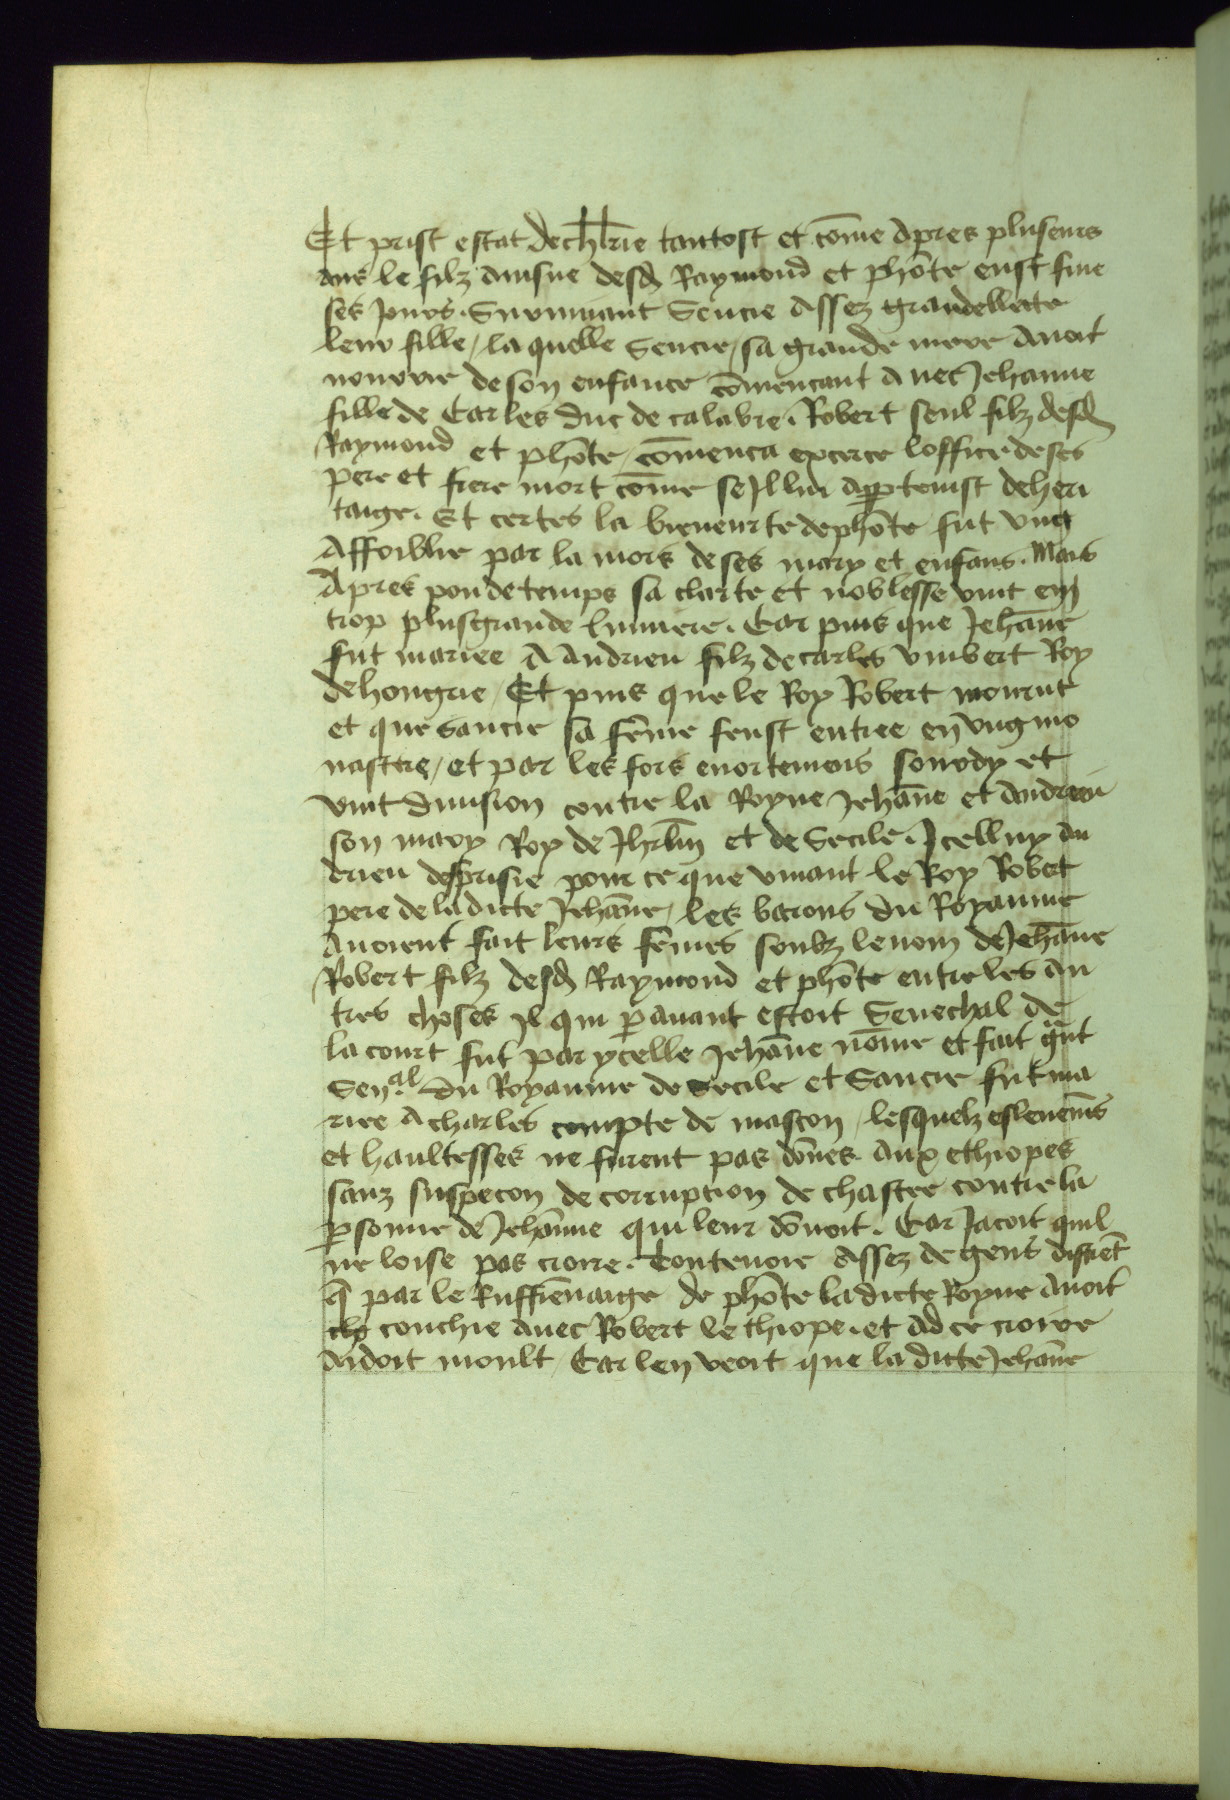 Et prist estat de chlrie tantost et cōme Apres pluseurs
ans le filz ainsne desd Raymond et phōte eust fine
ses jours. Suruiuant Sencie Assez grandellette
leur fille / la quelle Sencie / sa grande mere Auoit
nourrie de son enfance cōmencant Auec Jehanne
fille de Carles duc de calabre. Robert seul filz desd
Raymond et phōte / cōmenca excerce loffice de ses
pere et frere mort cōme se Jl lui Apptenist de heri
taige. Et certes la bieneurte de phōte fut vng
Affoiblie par la mors de ses mary et enfans. Mais
Apres pou de temps sa clarte et noblesse vint en
trop plusgrande lumiere. Car puis que Jehāne
fut mariee A Andrieu filz de carles vmbert Roy
de hongrie / Et puis que le Roy Robert mourut
et que Sancie sa fēme feust entree en vng mo
nastere / et par les fors enortemens sourdy et
vint diuision contre la Royne Jehāne et Andrieu
son mary Roy de Jhrlm et de Secile. Jcelluy An
drieu desprisie pour ce que viuant le Roy Robert
pere de ladicte Jehāne / les barons du Royaume
Auoient fait leurs fēmes soubz le nom de Jehāne
Robert filz desd Raymond et phōte entre les Au
tres choses Jl qui pauant estoit Seneschal de
la court fut par ycelle Jehāne nōme et fait grāt
Sen.al du Royaume de Secile et Sancie fut ma
riee A charles compte de mascon / lesquelz esleuemēs
et haultesses ne furent pas dōnes aux ethiopes
sanz suspecon de corruption de chastee contre la
psonne de Jehāne qui leur dōnoit. Car Jacoit quil
ne loise pas croire. Toutenoie Assez de gens distrēt
q par le Ruffienaige de phōte ladicte Royne Auoit
couchie auec Robert lethiope. et Ad ce croire
Aidoit moult / Car len veoit que la dicte Jehāne